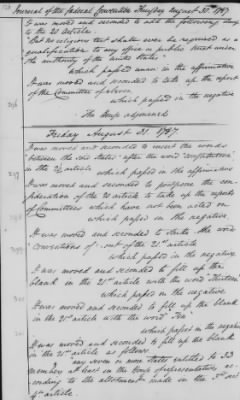 Journal of the federal Convention Thursday August 30. 1787
It was moved and seconded to add the following clause
to the 20 article.
"But no religious test shall ever be required as a
qualification to any office or public trust under
the authority of the United States"
which passed unan: in the affirmative
It was moved and seconded to take up the report
of the Committee of eleven
which passed in the negative
The House adjourned
Friday August 31. 1787
It was moved and seconded to insert the words
between the said States" after the word "constitution"
in the 21 article
which passed in the affirmative
It was moved and seconded to postpone the con-
sideration of the 21 article to take up the reports
of Committees which have not been acted on
which passed in the negative.
It was moved and seconded to strike the words
"conventions of" out of the 21st article
which passed in the negative.
It was moved and seconded to fill up the
blank in the 21st article with the word "thirteen"
which passed in the negative
It was moved and seconded to fill up the blank
in the 21st article with the word "Ten"
which passed in the negative
It was moved and seconded to fill up the blank
in the 21st article as follows
"any seven or more States entitled to 33
members at least in the House of representatives ac-
cording to the allotment made in the 3rd sect
4th article.